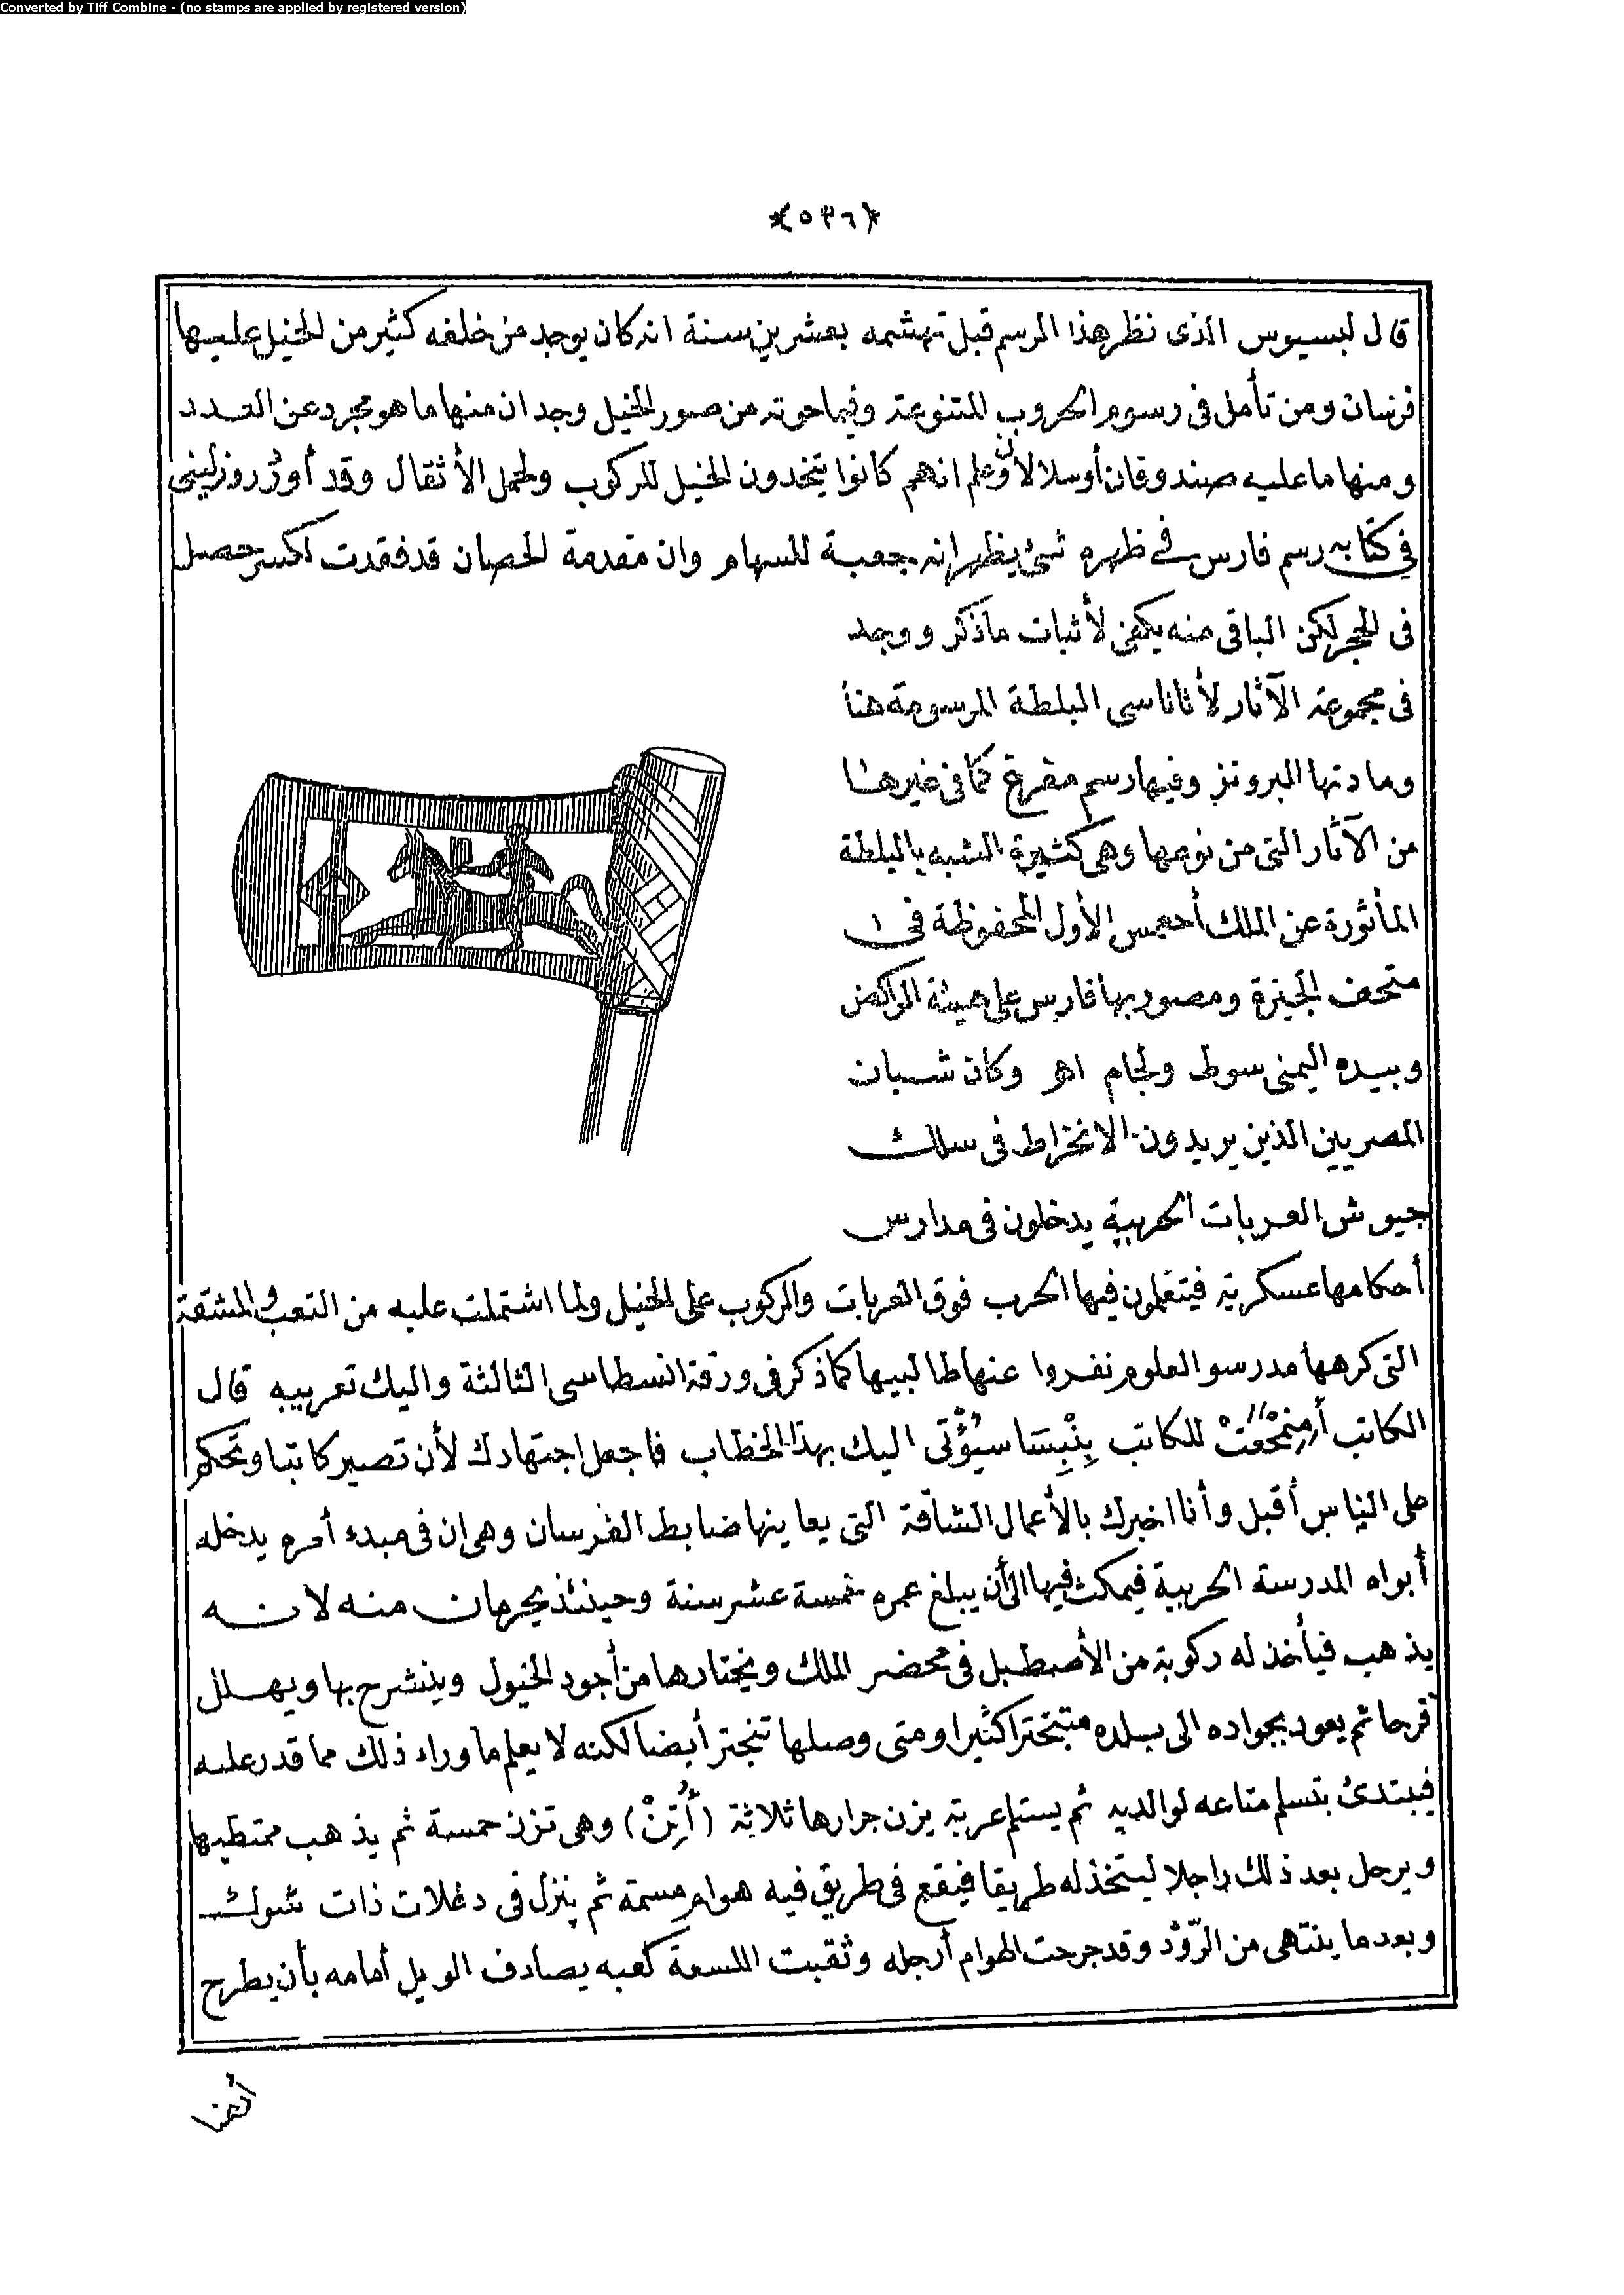 Converted by Tiff Combine - (no stamps are applied by registered version)
*(٥٣٦)*
قال لبسيوس الذى نظر هذا المرسم قبل تهشمه بعشرين سنة انه كان يوجد من خلفه كثير من الخيل عليها
فرسان ومن تأمل فى رسوم الحروب المتنوعة وفيما حوته من صور الخيل وجد ان منها ما هو مجرد عن العدد
ومنها ما عليه صندوقان أو سلالان وعلم انهم كانوا يتخذون الخيل للركوب ولحمل الأثقال وقد أورد روزلينى
فى كتابه رسم فارس فى ظهره شئ يظهر انه جعبة للسهام وان مقدمة الحصان قد فقدت لكسر حصل
فى الحجر لكن الباقى منه يكفى لأثبات ما ذكر ووجد
فى مجموعة الآثار لأتاناسى البلطة المرسومة هنا
ومادتها البرونز وفيها رسم مفرغ كما فى غيرها
من الآثار التى من نوعها وهى كثيرة الشبه بالبلطة
المأثورة عن الملك أحمس الأول المحفوظة فى
متحف الجيزة ومصور بها فارس على هيئة الراكض
وبيده اليمنى سوط ولجام اهـ وكان شبان
المصريين الذين يريدون الانخراط فى سلك
جيوش العربات الحربية يدخلون فى مدارس
أحكامها عسكرية فيتعلمون فيها الحرب فوق العربات والركوب على الخيل ولما اشتملت عليه من التعب والمشقة
التى كرهها مدرسو العلوم نفروا عنها طالبيها كما ذكر فى ورقة انسطاسى الثالثة واليك تعريبه قال
الكاتب للكاتب بِنْبِسَا سيُؤْتى اليك بهذا الخطاب فاجعل اجتهادك لأن تصير كاتبا وتحكم
على الناس أقبل وأنا اخبرك بالأعمال الشاقة التى يعاينها ضابط الفرسان وهى ان فى مبدء أمره يدخله
أبواه المدرسة الحربية فيمكث فيها الى أن يبلغ عمره خمسة عشر سنة وحينئذ يحرمان منه لانه
يذهب فيأخذ له ركوبة من الأصطبل فى محضر الملك ويختارها من أجود الخيول وينشرح بها ويهلل
فرحا ثم يعود بجواده الى بلده متبخترا كثيرا ومتى وصلها تبختر أيضا لكنه لا يعلم ما وراء ذلك مما قدر عليه
فيبتدئ بتسلم متاعه لوالديه ثم يستلم عربة يزن جرارها ثلاثة (أُتِنْ) وهى تزن خمسة ثم يذهب ممتطيها
ويرحل بعد ذلك راجلا ليتخذ له طريقا فيقع فى طريق فيه هوام مسمة ثم ينزل فى دغلات ذات شوك
وبعد ما ينتهى من الرَّوْد وقد جرحت الهوام أرجله وثقبت اللسعة كعبه يصادف الويل أمامه بأن يطرح